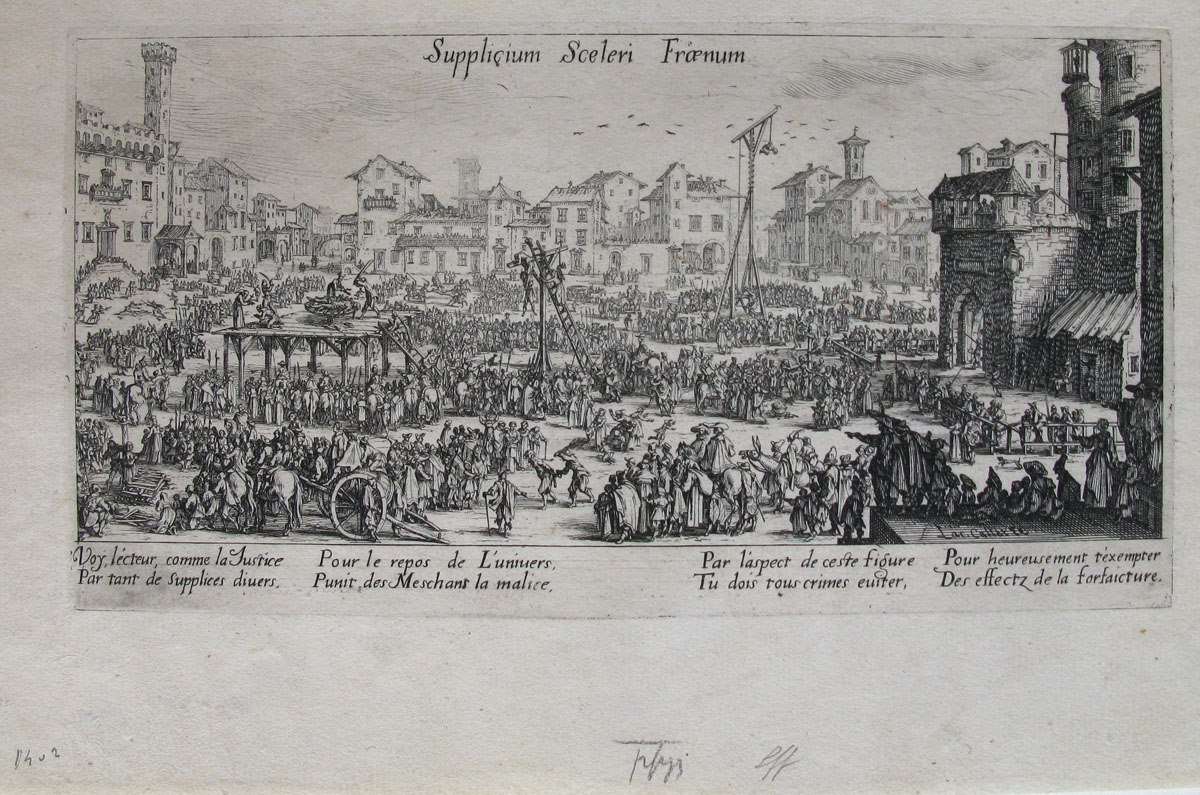 Suppliçium Sceleri Frœnum
Voy, lécteur, comme la Justice
Par tant de supplices diuers,
Pour le repos de L'uniuers,
Punit des Meschans la malice,
Par l'aspect de ceste figure
Tu dois tous crimes euiter,
Pour heureusement t'exempter
Des effectz de la forfaicture.